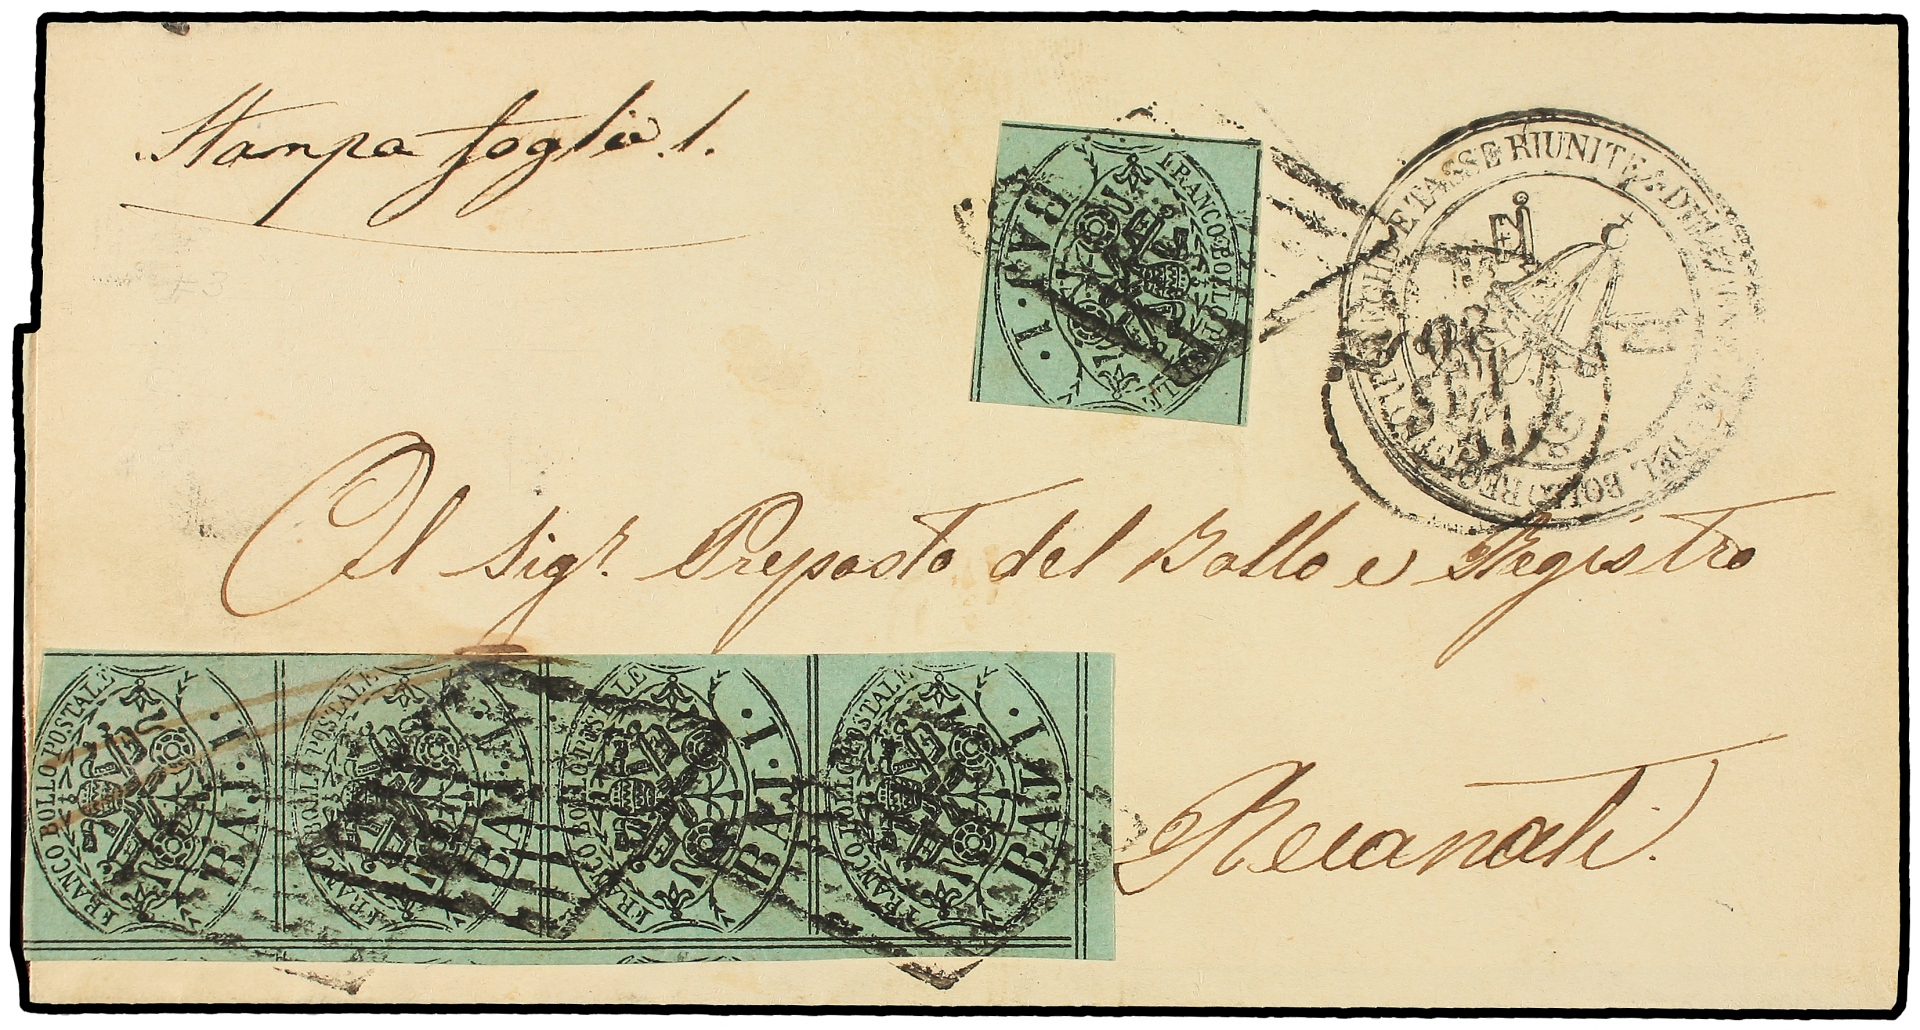 Stampa foglio 1.
FRANCO BOLLO POSTALE
BAJ. 1.
RIUNITE
28
SET
Al Sigr. Preposto del Bollo e Registro
Recanati.
FRANCO BOLLO POSTALE
BAJ. 1.
FRANCO BOLLO POSTALE
BAJ. 1.
FRANCO BOLLO POSTALE
BAJ. 1.
FRANCO BOLLO POSTALE
BAJ. 1.